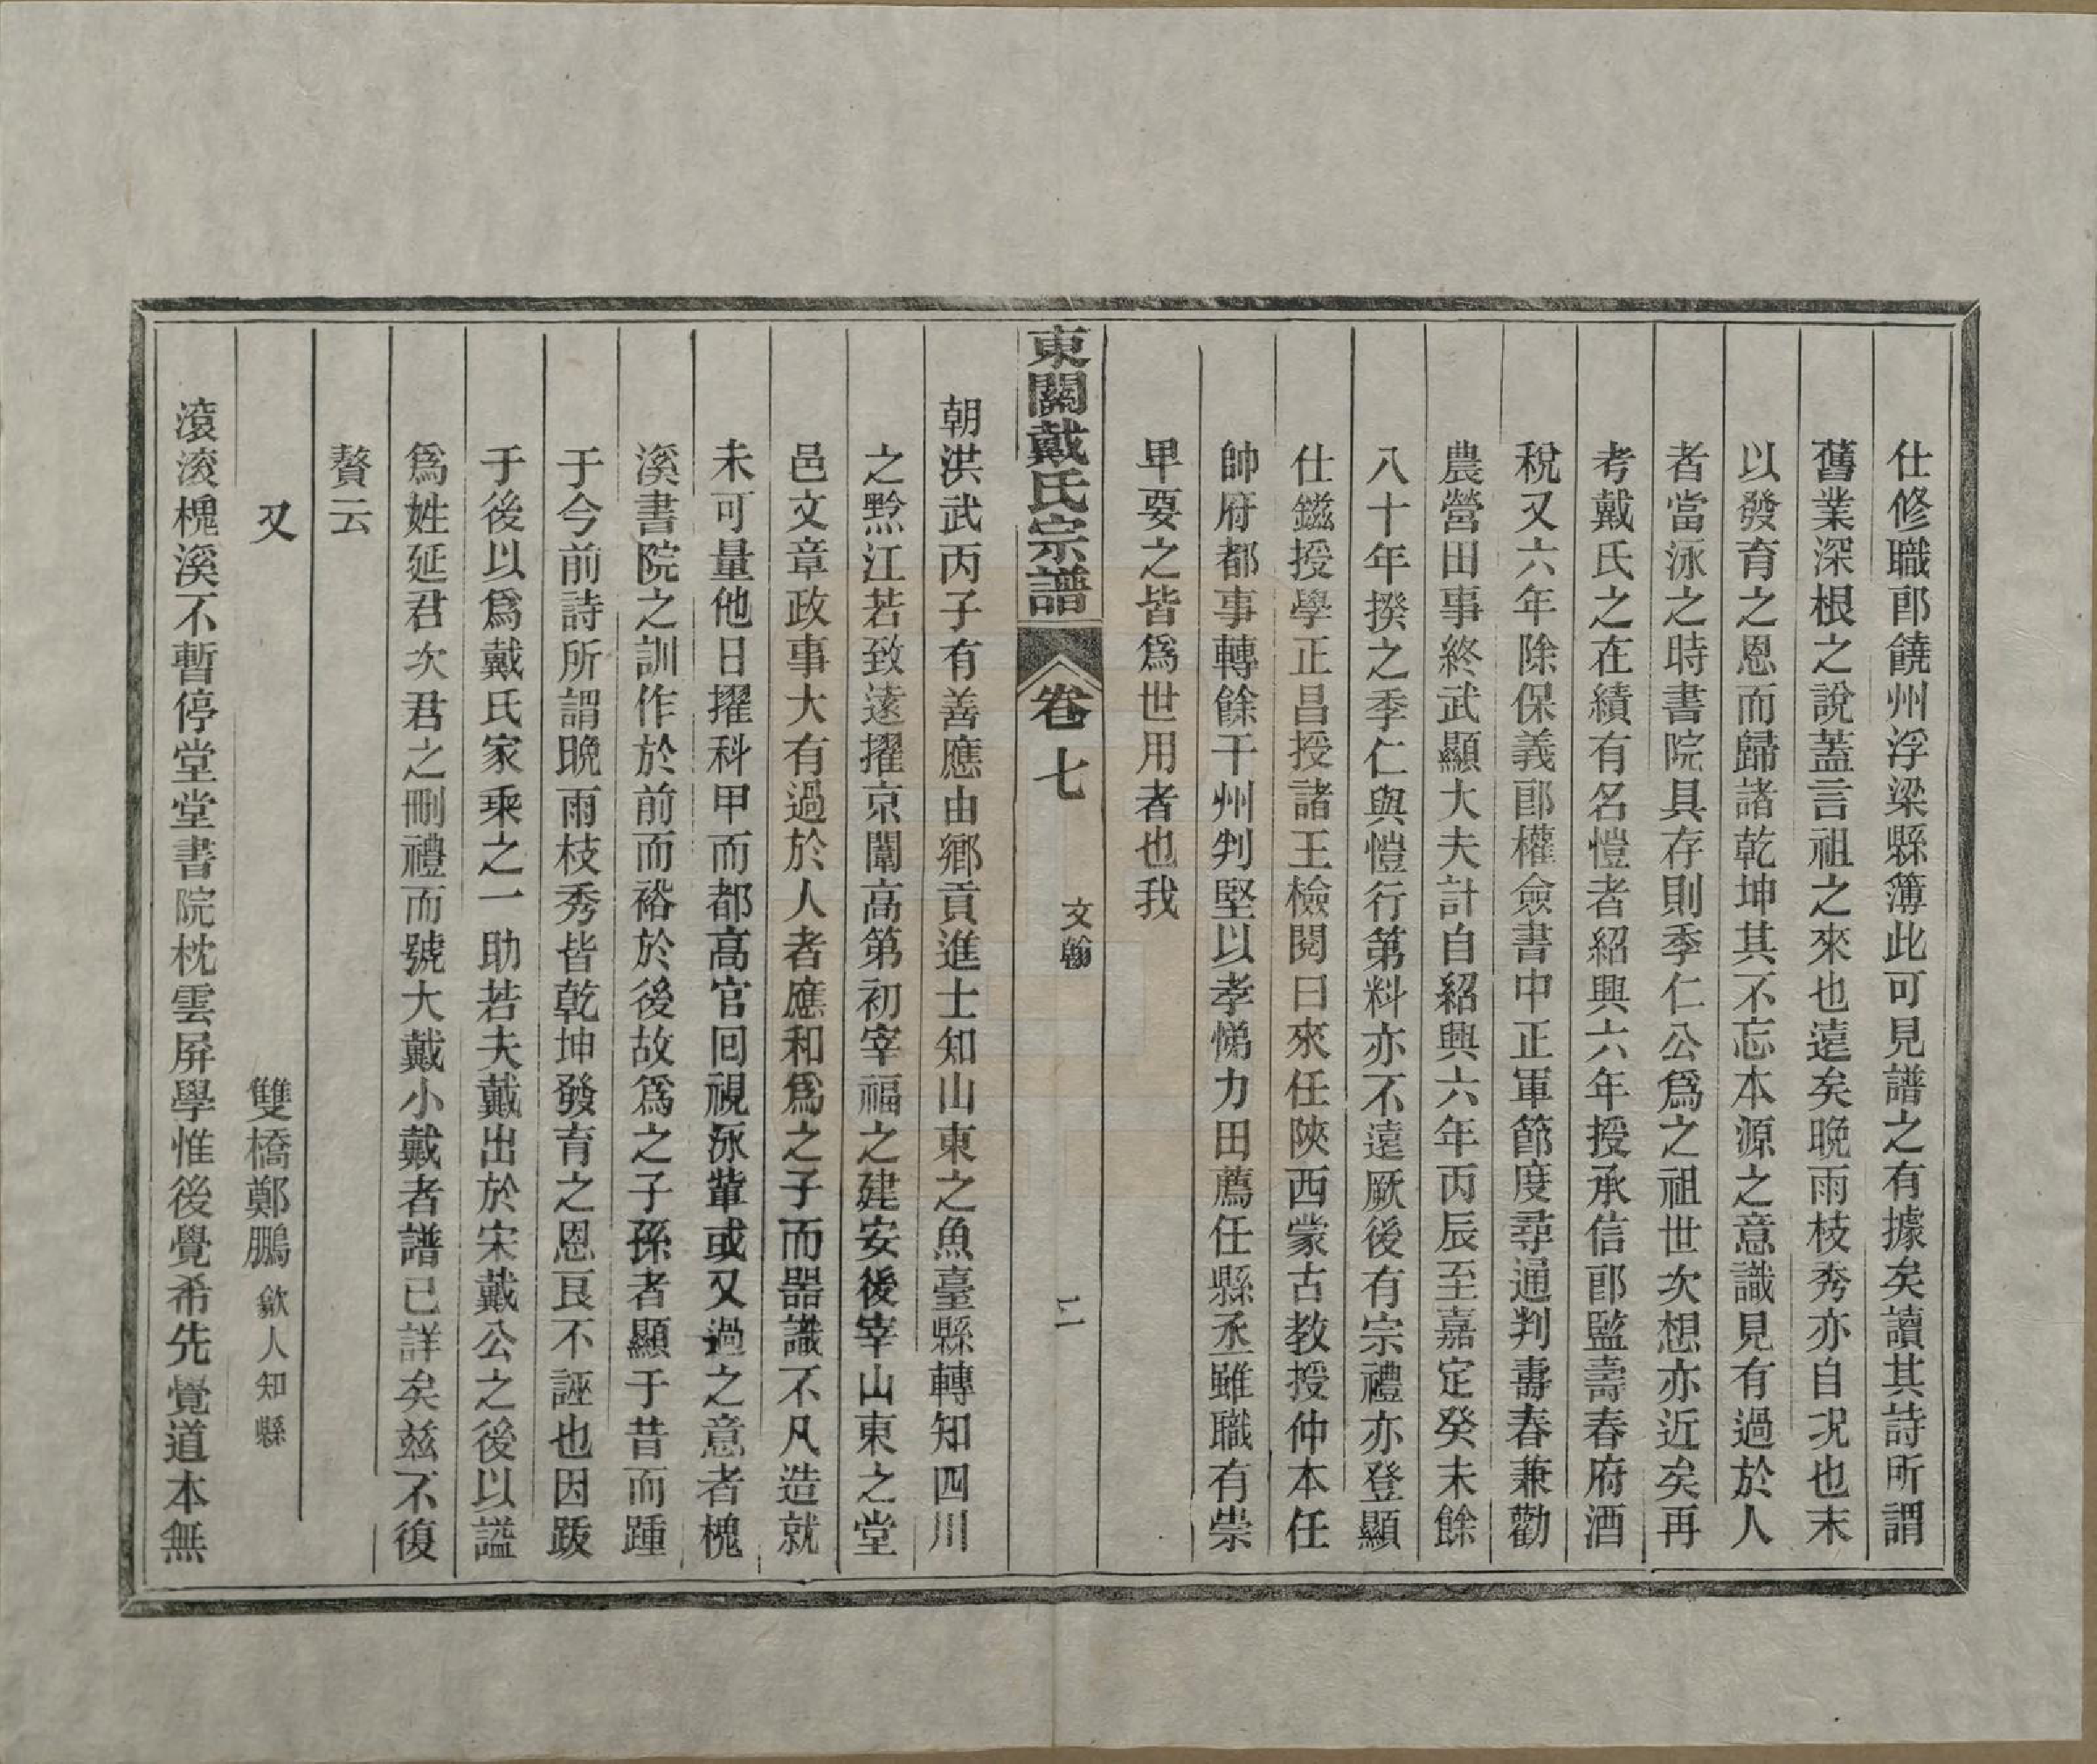 仕修職郎饒州浮梁縣簿此可見譜之有據矣讀其詩所謂
舊業深根之說蓋言祖之來也遠矣晩雨枝秀亦自況也末
以發育之恩而歸諸乾坤其不忘本源之意識見有過於人
者當泳之時書院具存則季仁公爲之祖世次想亦近矣再
考戴氏之在績有名愷者紹興六年授承信郎監壽春府酒
稅又六年除保義郎權僉書中正軍節度尋通判壽春兼勸
農營田事終武顯大夫計自紹興六年丙辰至嘉定癸未餘
八十年揆之季仁與愷行第料亦不遠厥後有宗禮亦登顯
仕鎡授學正昌授諸王檢閱曰來任陝西蒙古教授仲本任
帥府都事轉餘干州判堅以孝悌力田薦任縣丞雖職有崇
卑要之皆爲世用者也我
東關戴氏宗譜 卷七 文翰 二
朝洪武丙子有善應由鄉貢進士知山東之魚臺縣轉知四川
之黔江若致遠擢京闈高第初宰福之建安後宰山東之堂
邑文章政事大有過於人者應和爲之子而器識不凡造就
未可量他日擢科甲而都高官回視泳輩或又過之意者槐
溪書院之訓作於前而裕於後故爲之子孫者顯于昔而踵
于今前詩所謂晩雨枝秀皆乾坤發育之恩良不誣也因跋
于後以爲戴氏家乘之一助若夫戴出於宋戴公之後以謚
爲姓延君次君之刪禮而號大戴小戴者譜已詳矣茲不復
贅云
又 雙橋鄭鵬 歙人知縣
滾滾槐溪不暫停堂堂書院枕雲屏學惟後覺希先覺道本無